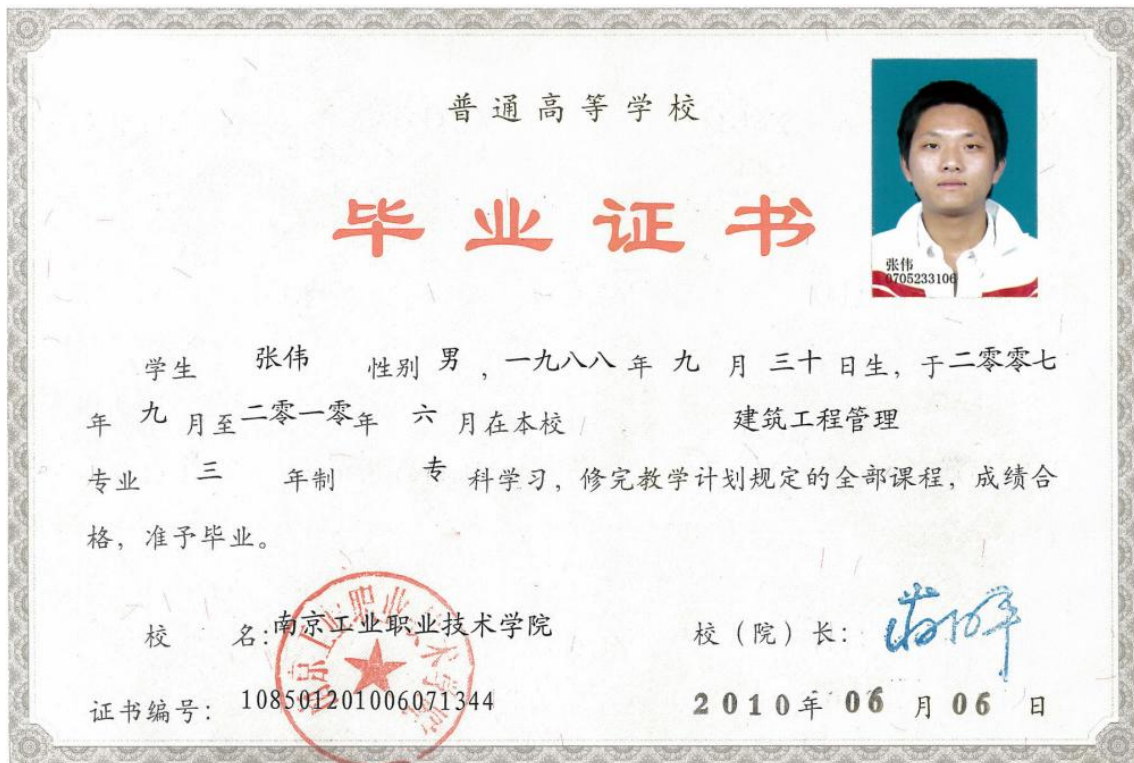 普通高等学校
毕业证书
张伟
0705233106
学生 张伟 性别 男 ，一九八八 年 九 月 三十 日生，于二零零七
年 九 月至二零一零年 六 月在本校 建筑工程管理
专业 三 年制 专 科学习，修完教学计划规定的全部课程，成绩合
格，准予毕业。
校 名：南京工业职业技术学院
校（院）长：
证书编号：108501201006071344
2010年 06 月 06 日
南京工业职业技术学院